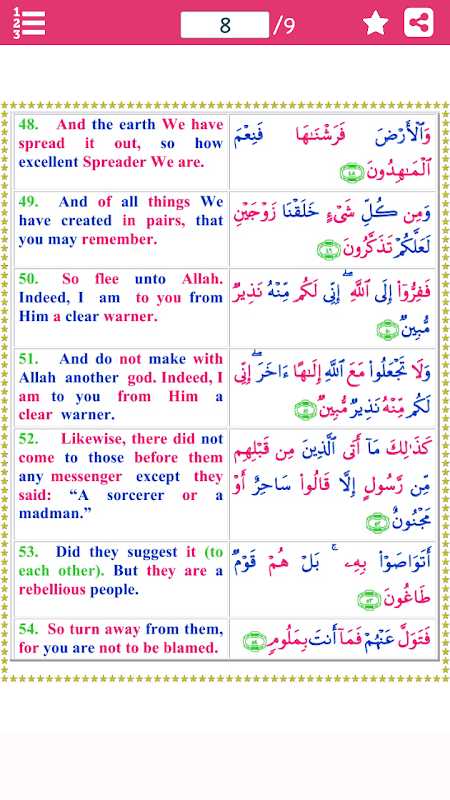 1
2
3
8 /9
48. And the earth We have
spread it out, so how
excellent Spreader We are.
وَٱلْأَرْضَ فَرَشْنَـٰهَا فَنِعْمَ
ٱلْمَـٰهِدُونَ ٤٨
49. And of all things We
have created in pairs, that
you may remember.
وَمِن كُلِّ شَىْءٍ خَلَقْنَا زَوْجَيْنِ
لَعَلَّكُمْ تَذَكَّرُونَ ٤٩
50. So flee unto Allah.
Indeed, I am to you from
Him a clear warner.
فَفِرُّوٓا۟ إِلَى ٱللَّهِ ۖ إِنِّى لَكُم مِّنْهُ نَذِيرٌ
مُّبِينٌ ٥٠
51. And do not make with
Allah another god. Indeed, I
am to you from Him a
clear warner.
وَلَا تَجْعَلُوا۟ مَعَ ٱللَّهِ إِلَـٰهًا ءَاخَرَ ۖ إِنِّى
لَكُم مِّنْهُ نَذِيرٌ مُّبِينٌ ٥١
52. Likewise, there did not
come to those before them
any messenger except they
said: “A sorcerer or a
madman.”
كَذَٰلِكَ مَآ أَتَى ٱلَّذِينَ مِن قَبْلِهِم
مِّن رَّسُولٍ إِلَّا قَالُوا۟ سَاحِرٌ أَوْ
مَجْنُونٌ ٥٢
53. Did they suggest it (to
each other). But they are a
rebellious people.
أَتَوَاصَوْا۟ بِهِۦ ۚ بَلْ هُمْ قَوْمٌ
طَاغُونَ ٥٣
54. So turn away from them,
for you are not to be blamed.
فَتَوَلَّ عَنْهُمْ فَمَآ أَنتَ بِمَلُومٍ ٥٤